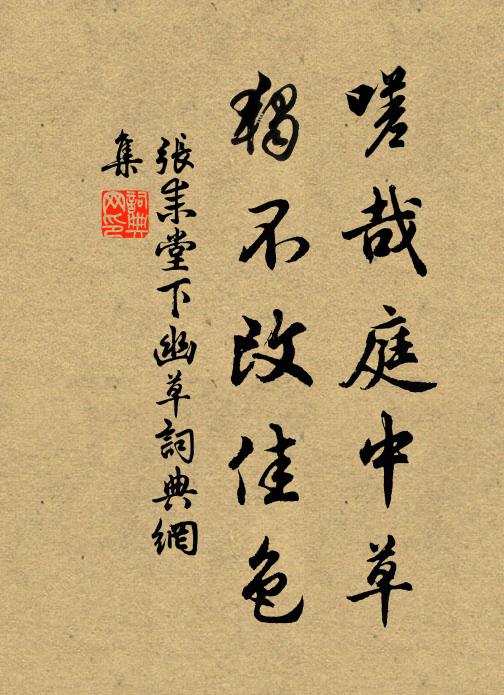 嗟哉庭中草
獨不改佳色
張耒堂下幽草詞典網
集
詞典
网印